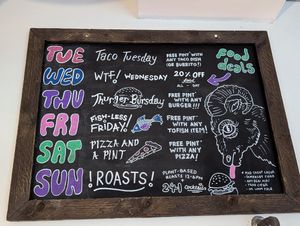 TUE
Taco Tuesday
FREE PINT* WITH
ANY TACO DISH
(OR BURRITO!)
food
deals
WED
WTF! WEDNESDAY
20% OFF
ALL - DAY
THU
Thurger Bursday
FREE PINT* WITH
ANY BURGER!!!
FRI
FISH-LESS
FRIDAY!
FREE PINT* WITH
ANY TOFISH ITEM!
SAT
PIZZA AND
A PINT
FREE PINT* WITH
ANY PIZZA!
SUN
!ROASTS!
PLANT-BASED
ROASTS 12-8PM
241 cocktails